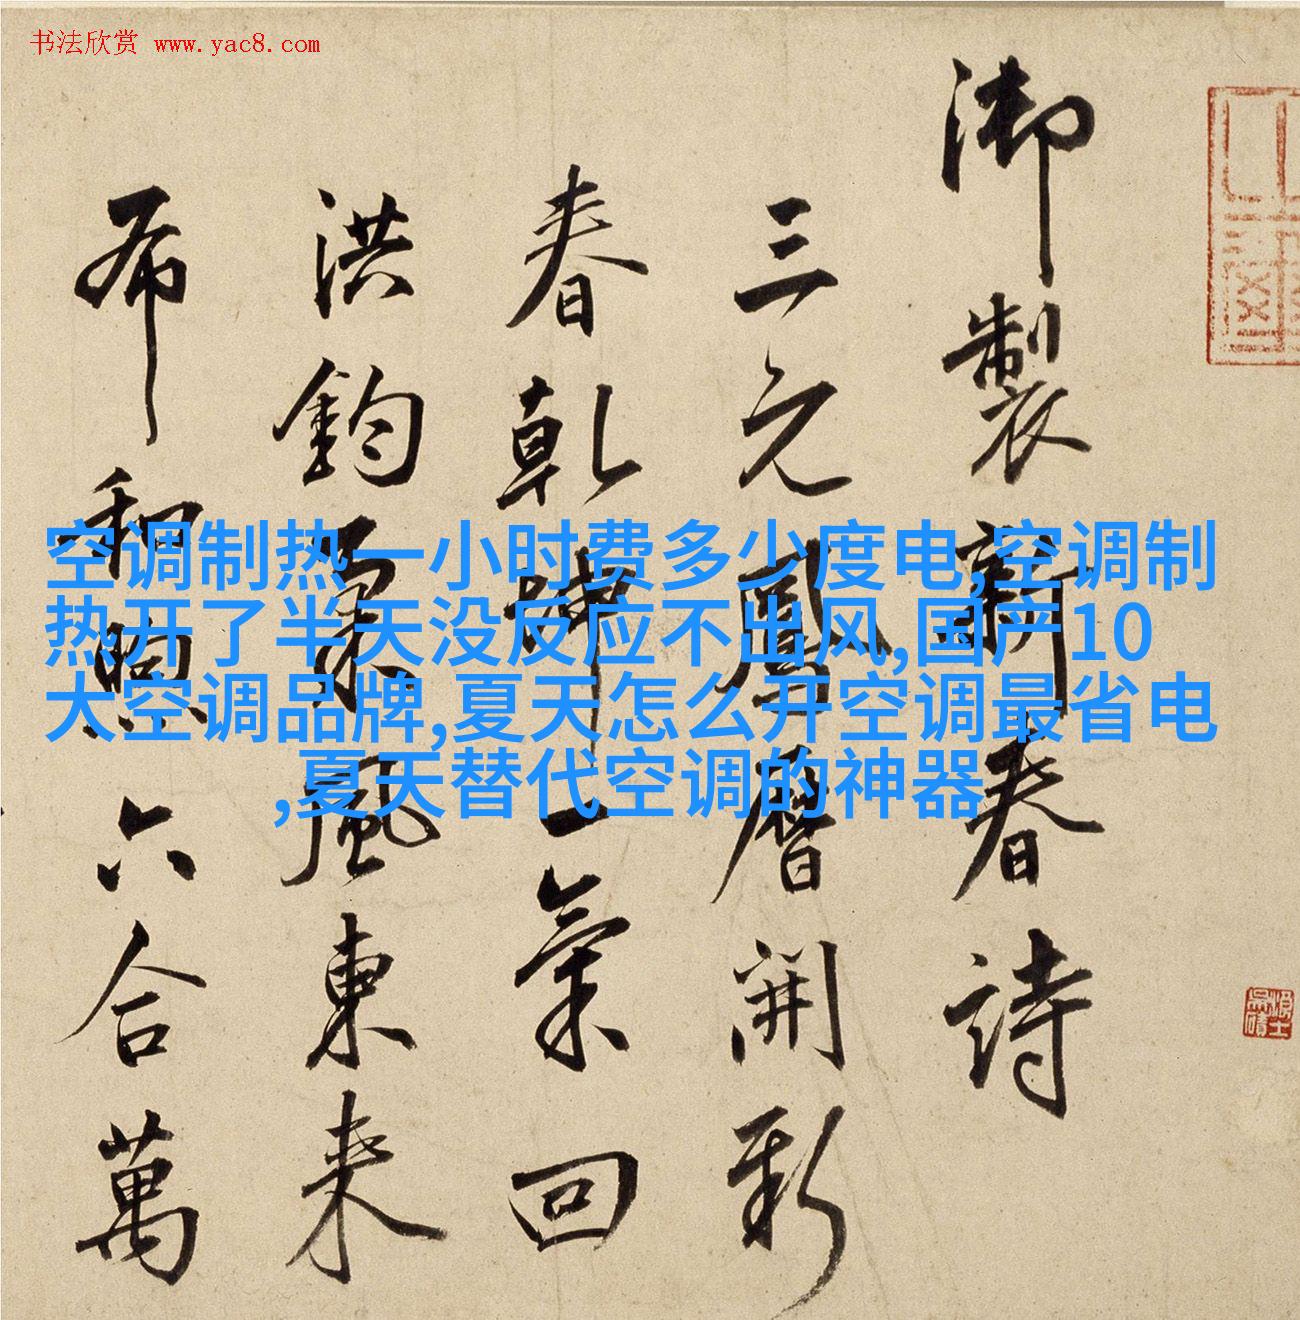 书法欣赏 www.yac8.com
御製新春詩
三元鳳曆開新
春乾坤一氣回
洪鈞風東来
布和煦六合萬
空调制热一小时费多少度电,空调制
热开了半天没反应不出风,国产10
大空调品牌,夏天怎么开空调最省电
,夏天替代空调的神器